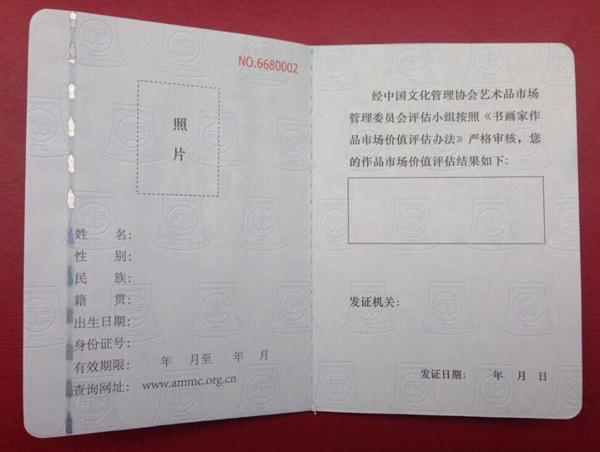 NO.6680002
照
片
姓 名：
性 别：
民 族：
籍 贯：
出生日期：
身份证号：
有效期限： 年 月至 年 月
查询网址： www.ammc.org.cn
经中国文化管理协会艺术品市场
管理委员会评估小组按照《书画家作
品市场价值评估办法》严格审核，您
的作品市场价值评估结果如下：
发证机关：
发证日期： 年 月 日